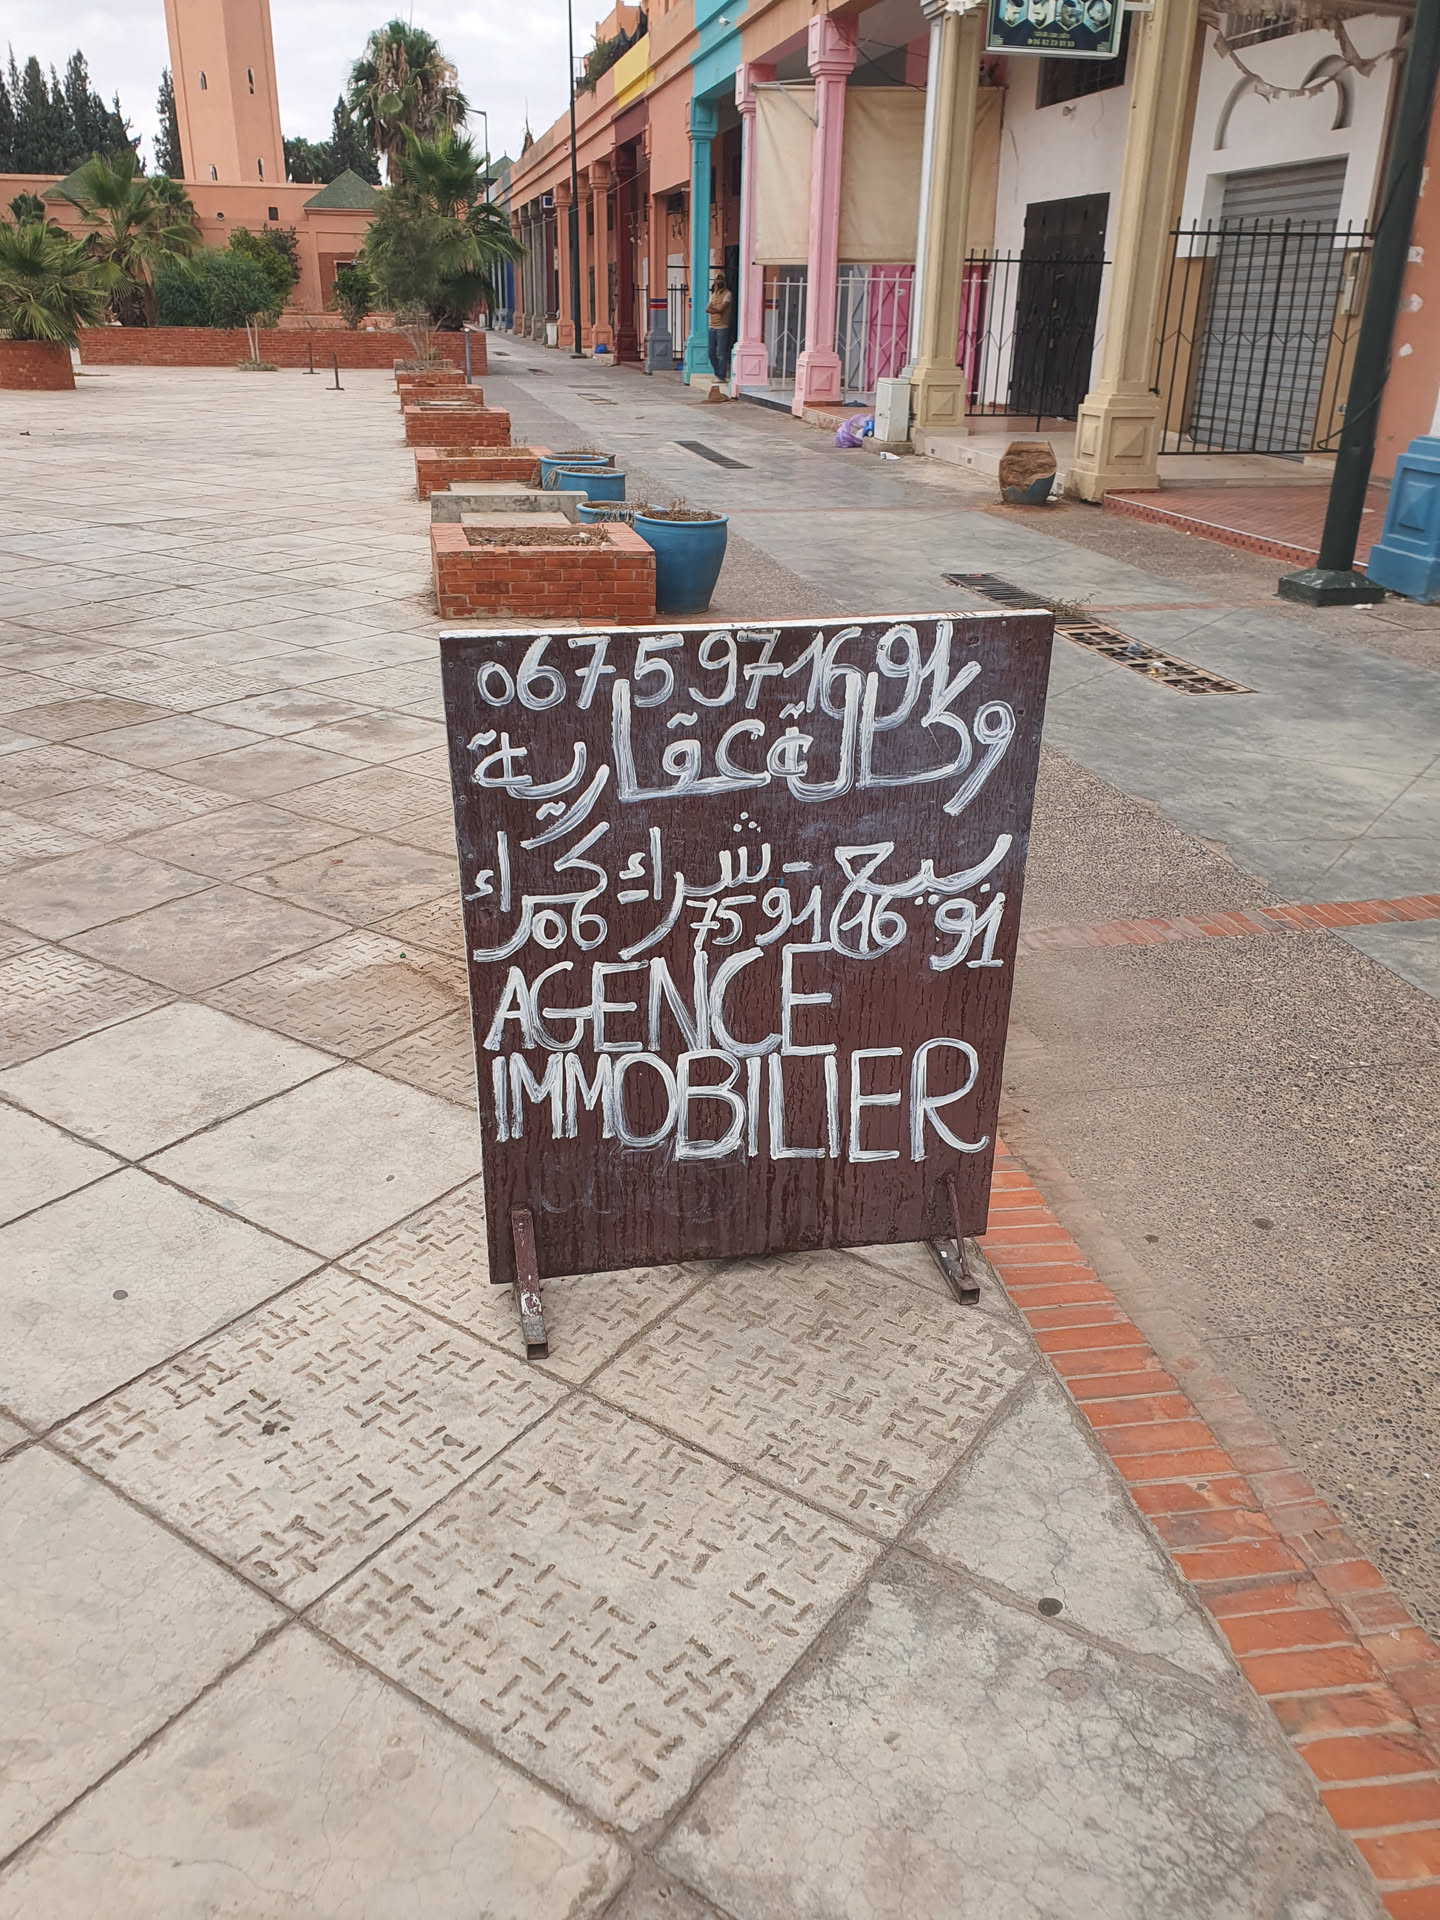 0675971691
وكالة عقارية
بيع - شراء كراء
06 75 91 16 91
AGENCE
IMMOBILIER